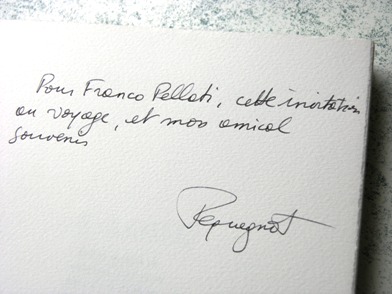 Pour Franco Pellati, cette invitation
au voyage, et mon amical
souvenir
Pequegnot